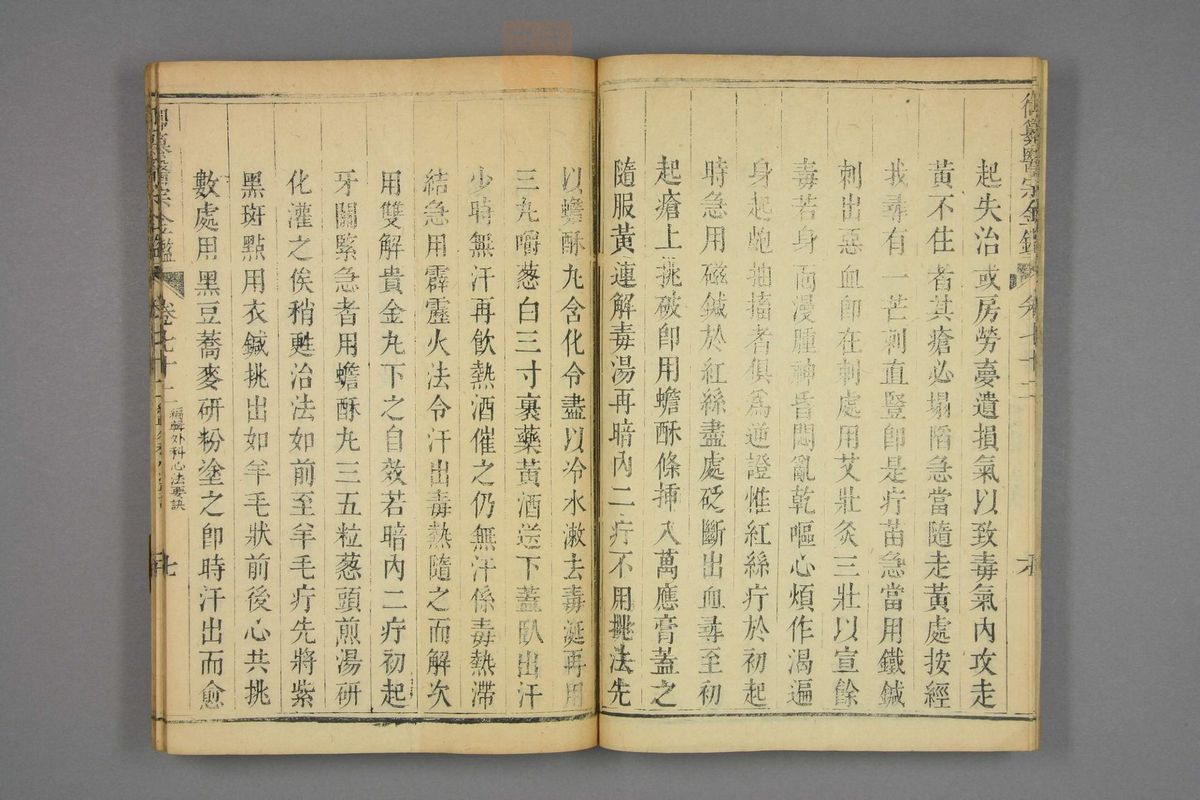 起失治或房勞夢遺損氣以致毒氣內攻走
黃不住者其瘡必塌陷急當隨走黃處按經
找尋有一芒刺直豎卽是疔苗急當用鐵鍼
刺出惡血卽在刺處用艾壯灸三壯以宣餘
毒若身面漫腫神昏悶亂乾嘔心煩作渴遍
身起皰抽搐者俱爲逆證惟紅絲疔於初起
時急用磁鍼於紅絲盡處砭斷出血尋至初
起瘡上挑破卽用蟾酥條插入萬應膏蓋之
隨服黃連解毒湯再暗內二疔不用挑法先
以蟾酥丸含化令盡以冷水漱去毒涎再用
三丸嚼葱白三寸裹藥黃酒送下蓋臥出汗
少時無汗再飲熱酒催之仍無汗係毒熱滯
結急用霹靂火法令汗出毒熱隨之而解次
用雙解貴金丸下之自效若暗內二疔初起
牙關緊急者用蟾酥丸三五粒葱頭煎湯研
化灌之俟稍甦治法如前至羊毛疔先將紫
黑斑點用衣鍼挑出如羊毛狀前後心共挑
數處用黑豆蕎麥研粉塗之卽時汗出而愈
御纂醫宗金鑑 卷七十二 編輯外科心法要訣 七